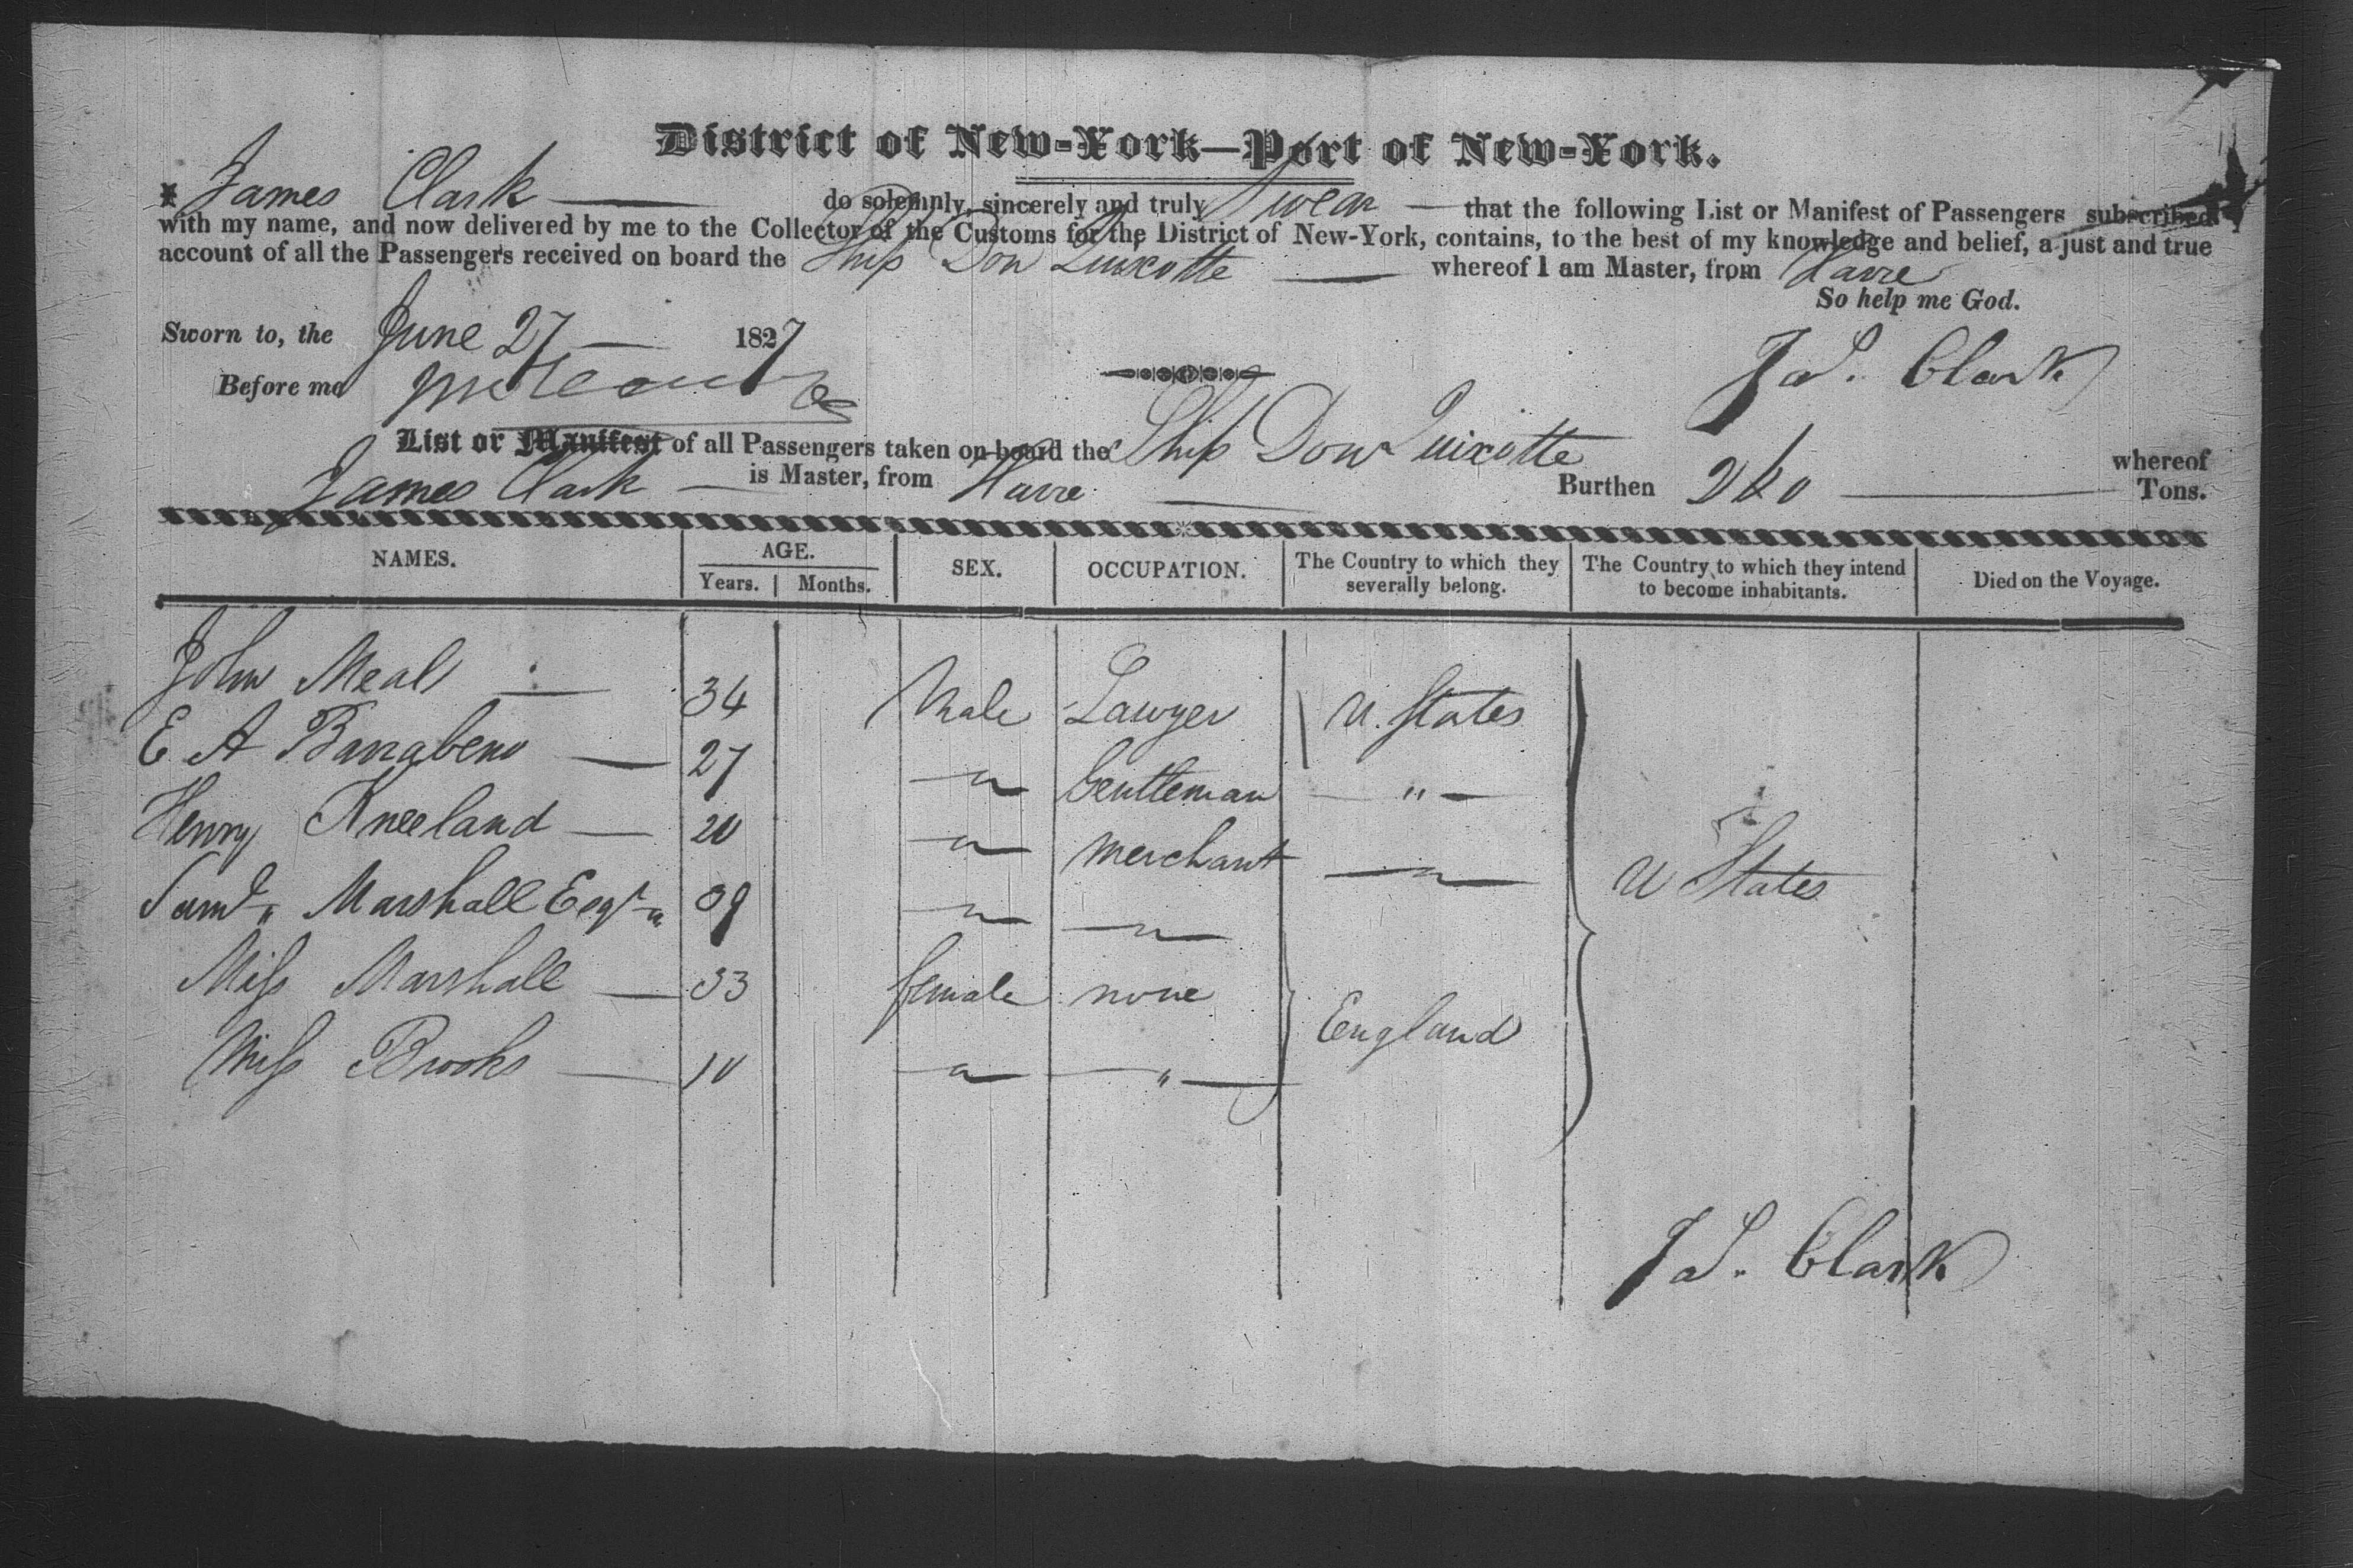 District of New-York—Port of New-York.
I James Clark do solemnly, sincerely and truly Swear that the following List or Manifest of Passengers subscribed
with my name, and now delivered by me to the Collector of the Customs for the District of New-York, contains, to the best of my knowledge and belief, a just and true
account of all the Passengers received on board the Ship Don Quixotte whereof I am Master, from Havre
So help me God.
Sworn to, the June 27 1827
Jas. Clark
Before me
List or Manifest of all Passengers taken on board the Ship Don Quixotte whereof
James Clark is Master, from Havre Burthen 260 Tons.
NAMES. AGE. Years. Months. SEX. OCCUPATION. The Country to which they severally belong. The Country to which they intend to become inhabitants. Died on the Voyage.
John Neal 34 Male Lawyer U. States
E A 27 " Gentleman "
Henry Kneeland 20 " Merchant " U States
Saml " Marshall Esqr " 39 " "
Miss Marshall 33 female none England
Miss Brooks 10 " "
Jas. Clark